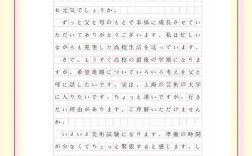 お元気でしょうか。
ずっと父と母のもとで幸福に成長させてい
ただいてありがとうございます。私は忙しい
ながらも充実した高校生活を送っています。
さて、もうすぐ高校の最後の学期になりま
すが、希望進路についていろいろ考えを父と
母に話したいです。実は、上海の芸術の大学
に入りたいです。ちょっと遠いですが、行き
たい理由があります。ご理解いただけません
か。
いよいよ美術試験になります。準備の時間
が少なくてちょっと緊張すると感じます。し